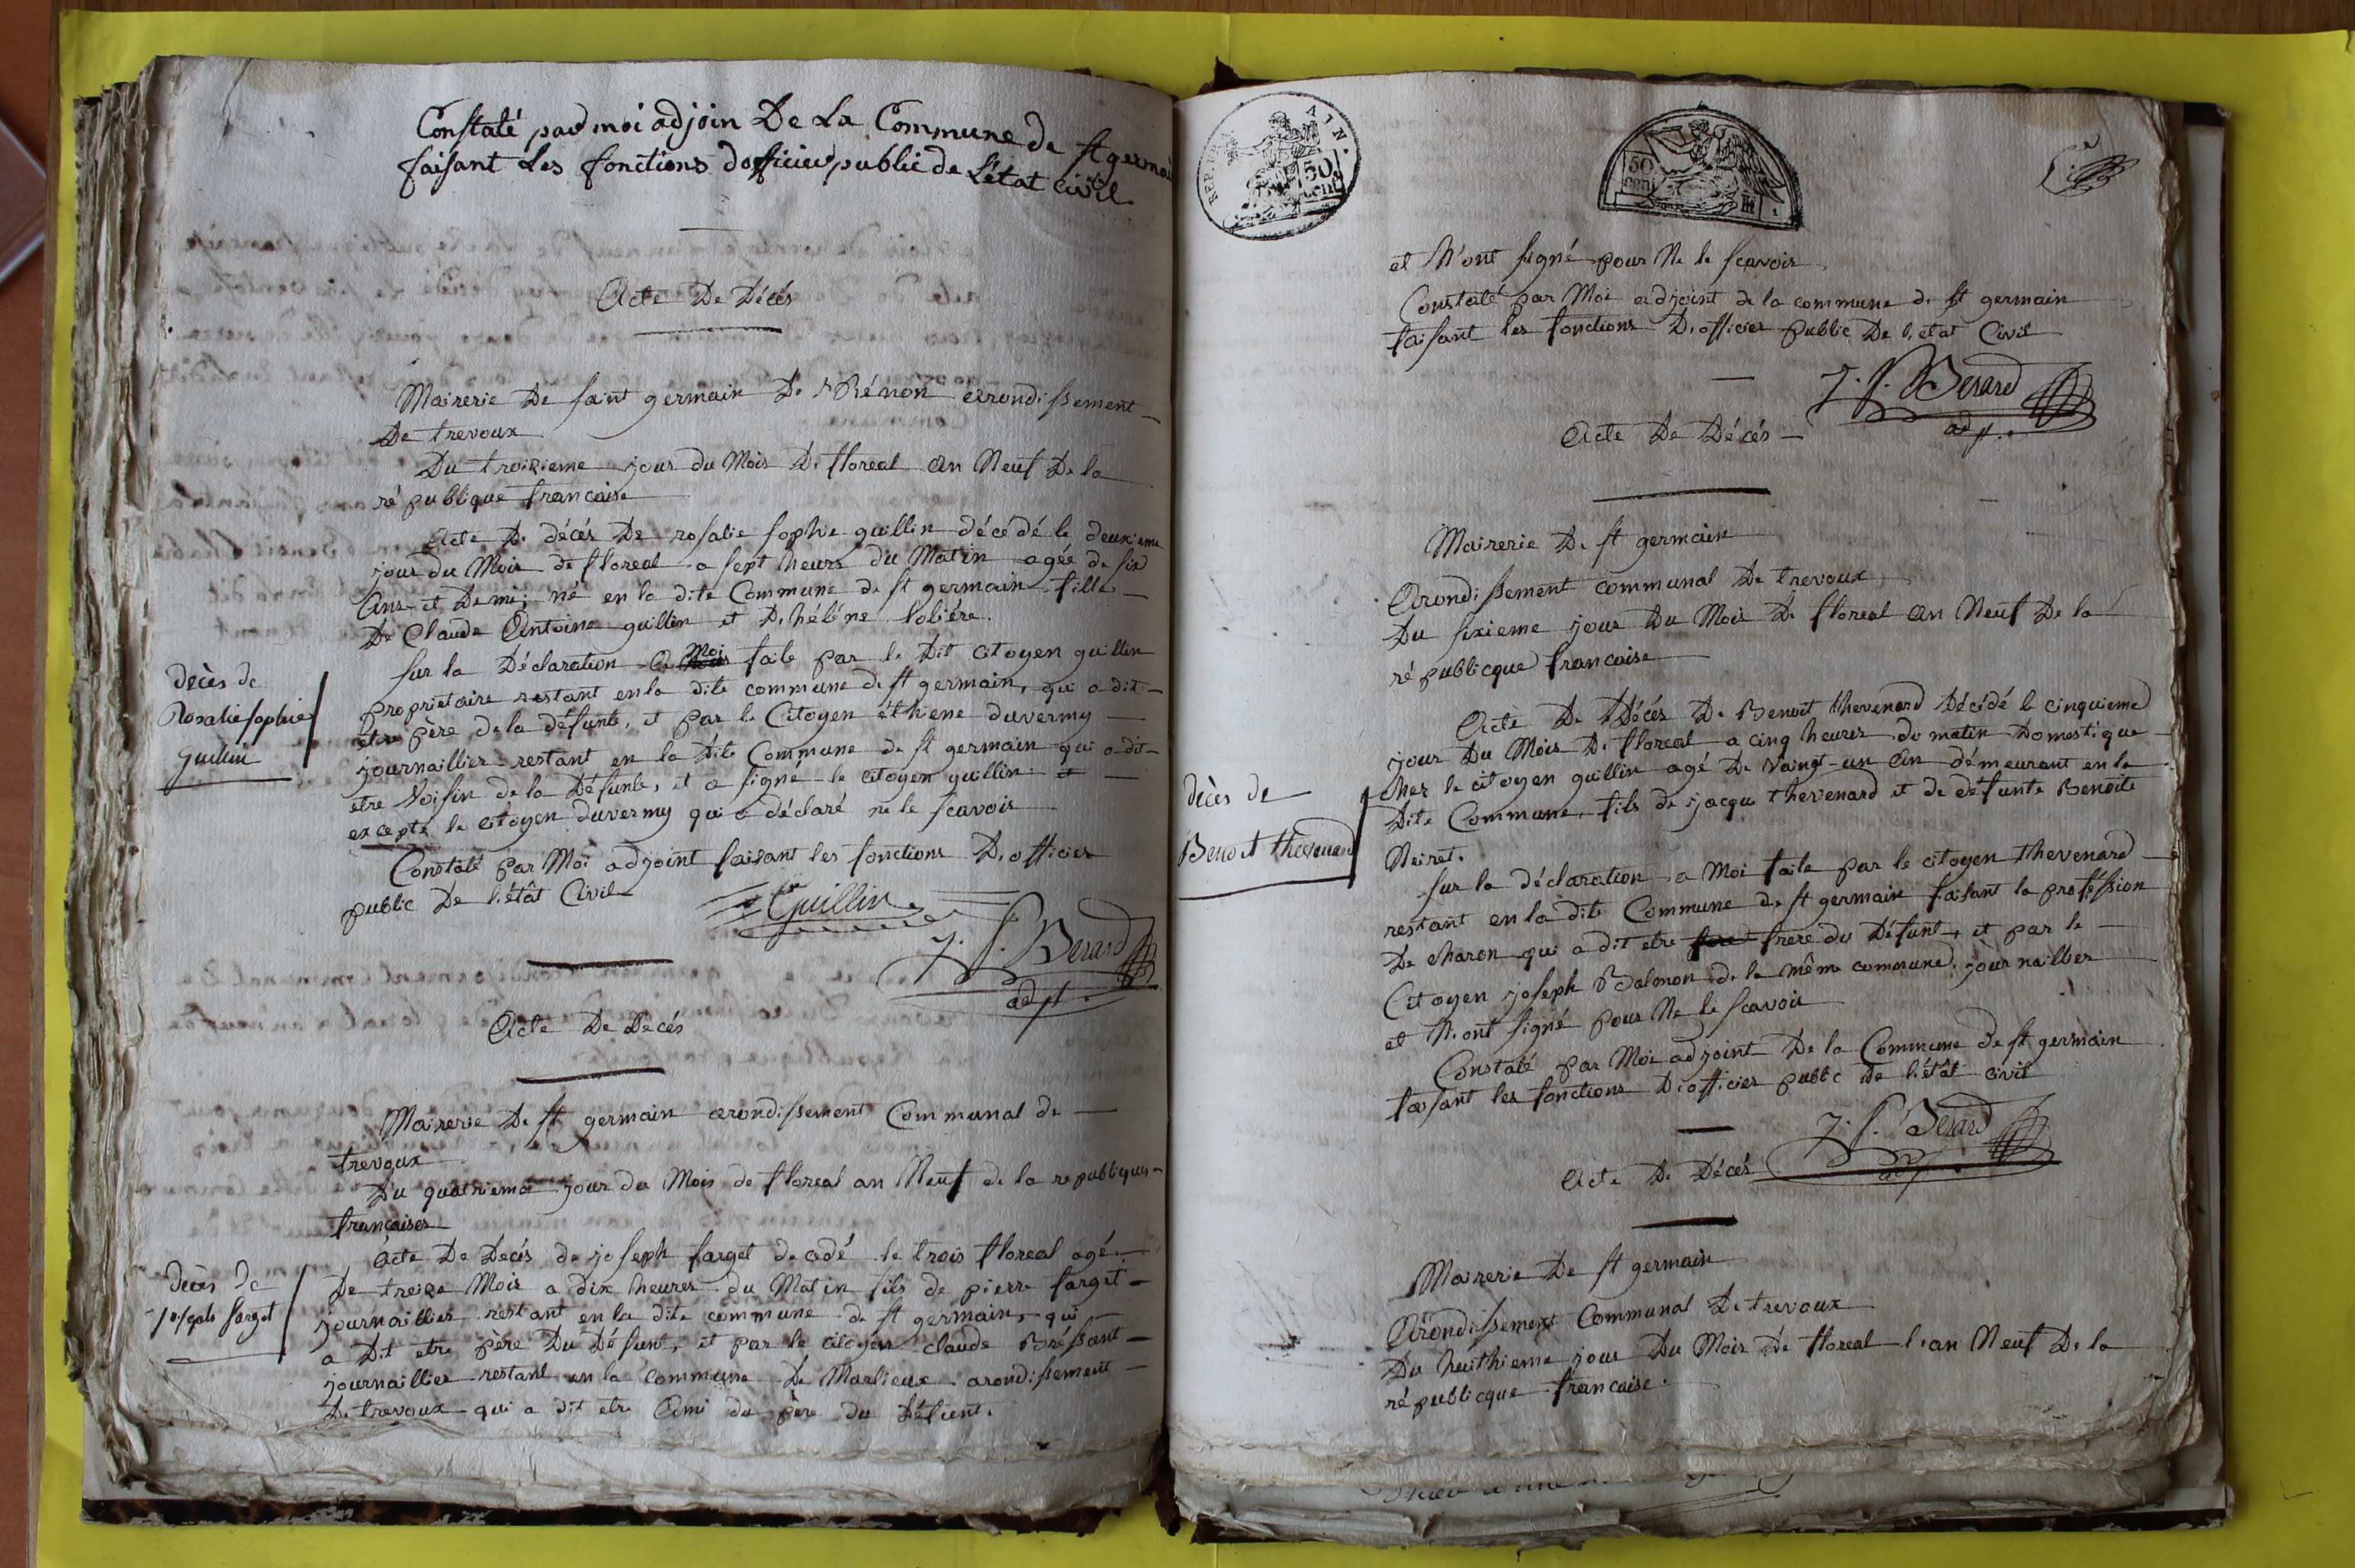 Constaté par moi adjoin De La Commune de st germain
faisant les fonctions dofficier public de L'état civil.
Acte De Décés
Mairerie De saint germain De Rénon arondissement
De trevoux
Du troizieme jour du Mois De floreal an Neuf De la
république francaise
Acte De décés De rosalie sophie guillin décédé le deuxieme
jour du Mois de floreal a sept heurs du Matin agée de six
Ans et Demi, né en la dite Commune de st germain fille
De Claude Antoine guillin et D'héléne
sur la Déclaration A Moi faite par le Dit citoyen guillin
propriétaire restant en la dite commune de st germain, qui a dit
etre père de la défunte, et par le Citoyen éthiene duvermy
journaillier restant en la Dite Commune de st germain qui a dit
etre Voisin de la Défunte, et a signé le citoyen guillin et
excepté le citoyen duvermy qui a déclaré ne le scavoir
Constaté par Moi adjoint faisant les fonctions D'officier
public De l'état Civil
Guillin
J. f. Berard
adjt.
décès de
Rosalie sophie
Guillin
Acte De Decés
Mairerie De st germain arondissement Communal de
trevoux
Du quatrieme jour du Mois de floreal an Neuf de la republique
françaises
Acte De Decés de joseph farget decedé le trois floreal agé
De treize Mois a dix heures du Matin fils de pierre farget
journaillier restant en la dite commune de st germain, qui
a Dit etre père Du Défunt, et par le citoyen claude Bréssant
journaillier restant en la commune De Marlieux arondissement
De trevoux qui a dit etre Ami du père du Défunt.
décès de
joseph farget
REP. FRA AIN.
50 cent
50 cent
et N'ont signé pour Ne le scavoir
Constaté par Moi adjoint de la commune de st germain
faisant les fonctions D'officier public De l'etat Civil
J. f. Berard
adjt.
Acte De Décés
Mairerie De st germain
Arondissement communal De trevoux
Du sixieme jour Du Mois De floreal an Neuf De la
républicque francaise
Acte De Décés De Benoit thevenard Décédé le cinquieme
jour Du Mois De floreal a cinq heures du matin Domestique
chez le citoyen guillin agé De vaingt-un an démeurant en la
Dite Commune, fils de jacque thevenard et de défunte Benoite
Neiret.
sur la déclaration a Moi faite par le citoyen thevenard
restant en la dite Commune de st germain faisant la proféssion
De charon qui a dit etre frere du Défunt, et par le
Citoyen joseph Balmon de la même commune, journaillier
et N'ont signé pour Ne le scavoir
Constaté par Moi adjoint De la Commune De st germain
faisant les fonctions D'officier public de l'état civil
J. f. Berard
adjt.
décès de
Benoit thevenard
Acte De Décés
Mairerie De st germain
Arondissement Communal De trevoux
Du huithieme jour Du Mois De floreal l'an Neuf De la
républicque francaise.